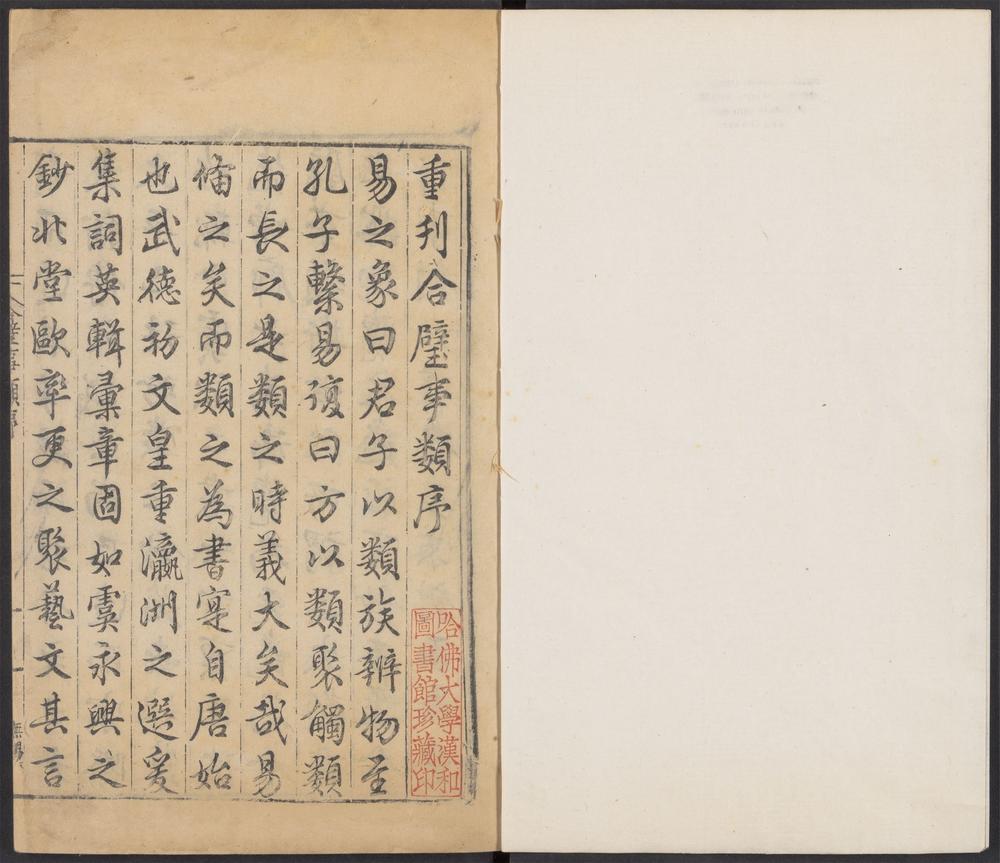 重刊合璧事類序
易之象曰君子以類族辨物至
孔子繫易復曰方以類聚觸類
而長之是類之時義大矣哉易
俻之矣而類之為書寔自唐始
也武德初文皇重瀛洲之選爰
集詞英輯彙章固如虞永興之
鈔北堂歐率更之聚藝文其言
哈佛大學漢和
圖書館珍藏印